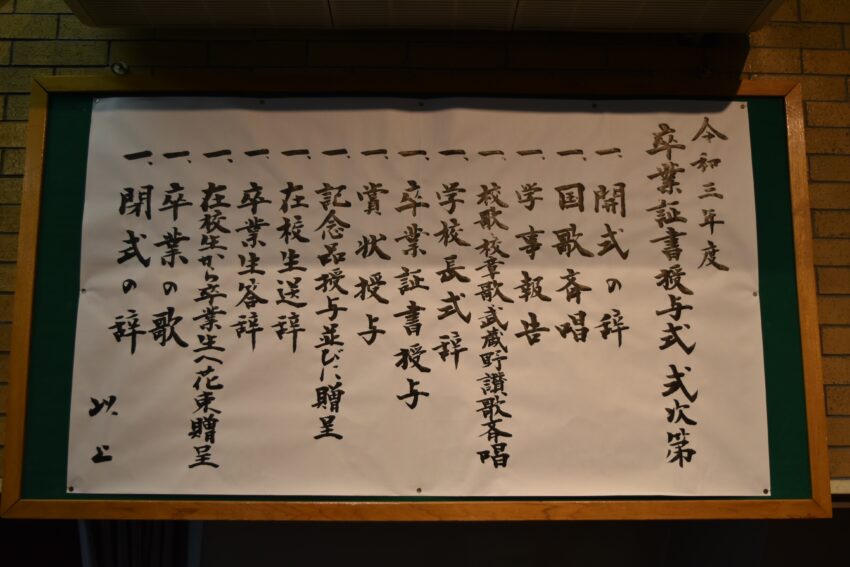 令和三年度
卒業証書授与式 式次第
一、開式の辞
一、国歌斉唱
一、学事報告
一、校歌校章歌武蔵野讃歌斉唱
一、学校長式辞
一、卒業証書授与
一、賞状授与
一、記念品授与並びに贈呈
一、在校生送辞
一、卒業生答辞
一、在校生から卒業生へ花束贈呈
一、卒業の歌
一、閉式の辞
以上